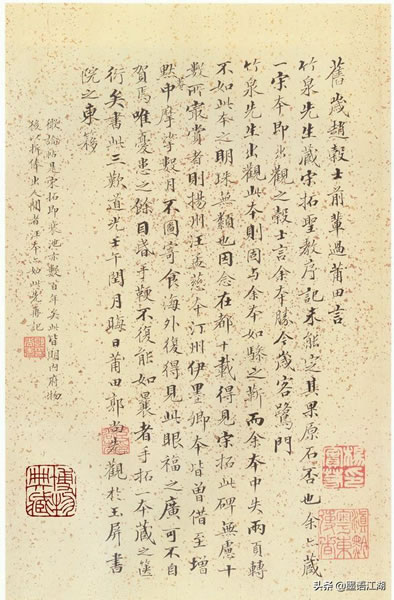 舊歲趙穀士前輩過莆田言
竹泉先生藏宋拓聖教序記未能定其果原石否也余亦藏
一宋本即出觀之穀士言余本勝今歲客鷺門
竹泉先生出觀此本則固与余本如驂之靳而余本中失兩頁轉
不如此本之明珠無纇也因念在都十載得見宋拓此碑無慮十
數所最賞者則揚州汪孟慈本汀州伊墨卿本皆曾借至增
默申摩挲數月不圖寄食海外復得見此眼福之廣可不自
賀焉唯憂患之餘目昏手鞕不復能如曩者手拓一本藏之篋
衍矣書此三歎道光壬午閏月晦日莆田郭尚先觀於玉屏書
院之東移
論帖是宋拓即裝池亦數百年矣此皆內府物
後以折俸出人間者汪本亦如此先再記
博物典藏
头条 @墨语江湖